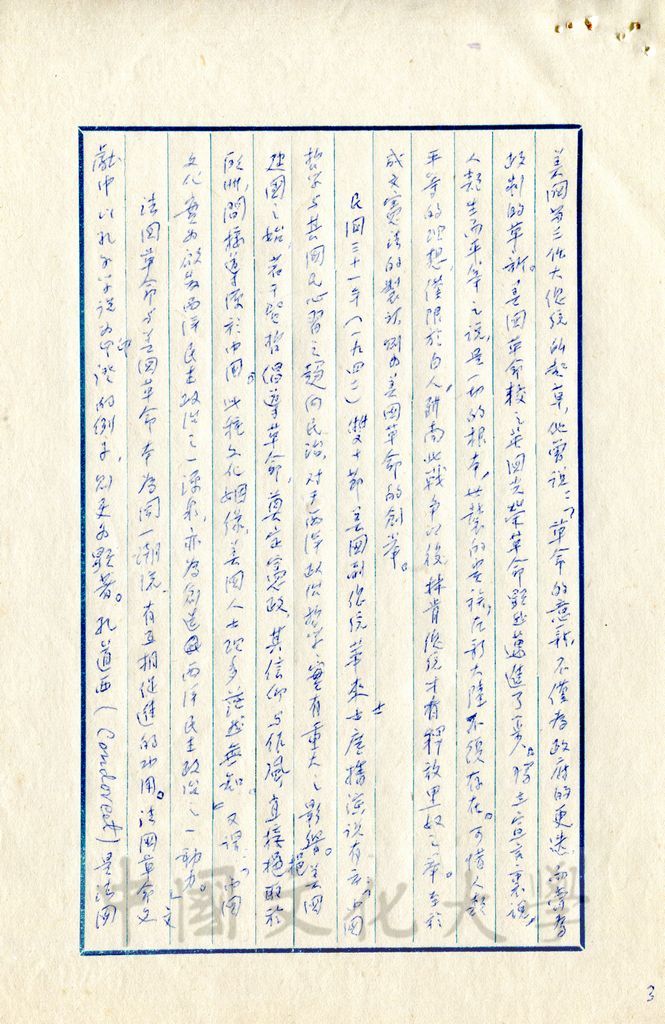 美國第三位大總統所起草，他曾說：「革命的意義，不僅為政府的更迭，而常為
政制的革新。」美國革命較之英國光榮革命顯然邁進了一步。獨立宣言裏說，
人類生而平等之說，是一切的根本，世襲的貴族，在新大陸不復存在。可惜人類
平等的理想，僅限於白人，研南北戰爭以後，林肯總統才有釋放黑奴之舉。至於
成文憲法的製訂則為美國革命的創舉。
民國三十一年（一九四二）雙十節，美國副總統華萊士廣播演說有云：「中國
哲學與其國民心習之趨向民治，對于西洋政治哲學，實有重大之影響。美國
建國之始，若干賢哲，倡導革命，奠定憲政，其信仰與作風，直接挹取於
歐洲，間接導源於中國。此種文化姻緣，美國人士現多茫然無知。」又謂：「中國
文化實為啟發西洋民主政治之一源泉，亦為創造西洋民主政治之一動力。」
法國革命與美國革命本為同一潮流，有互相促進的功用。法國革命文
獻中以孔子學說為印證的例子，則更為顯著。孔道西（Condorcet）是法國
3
中國文化大學